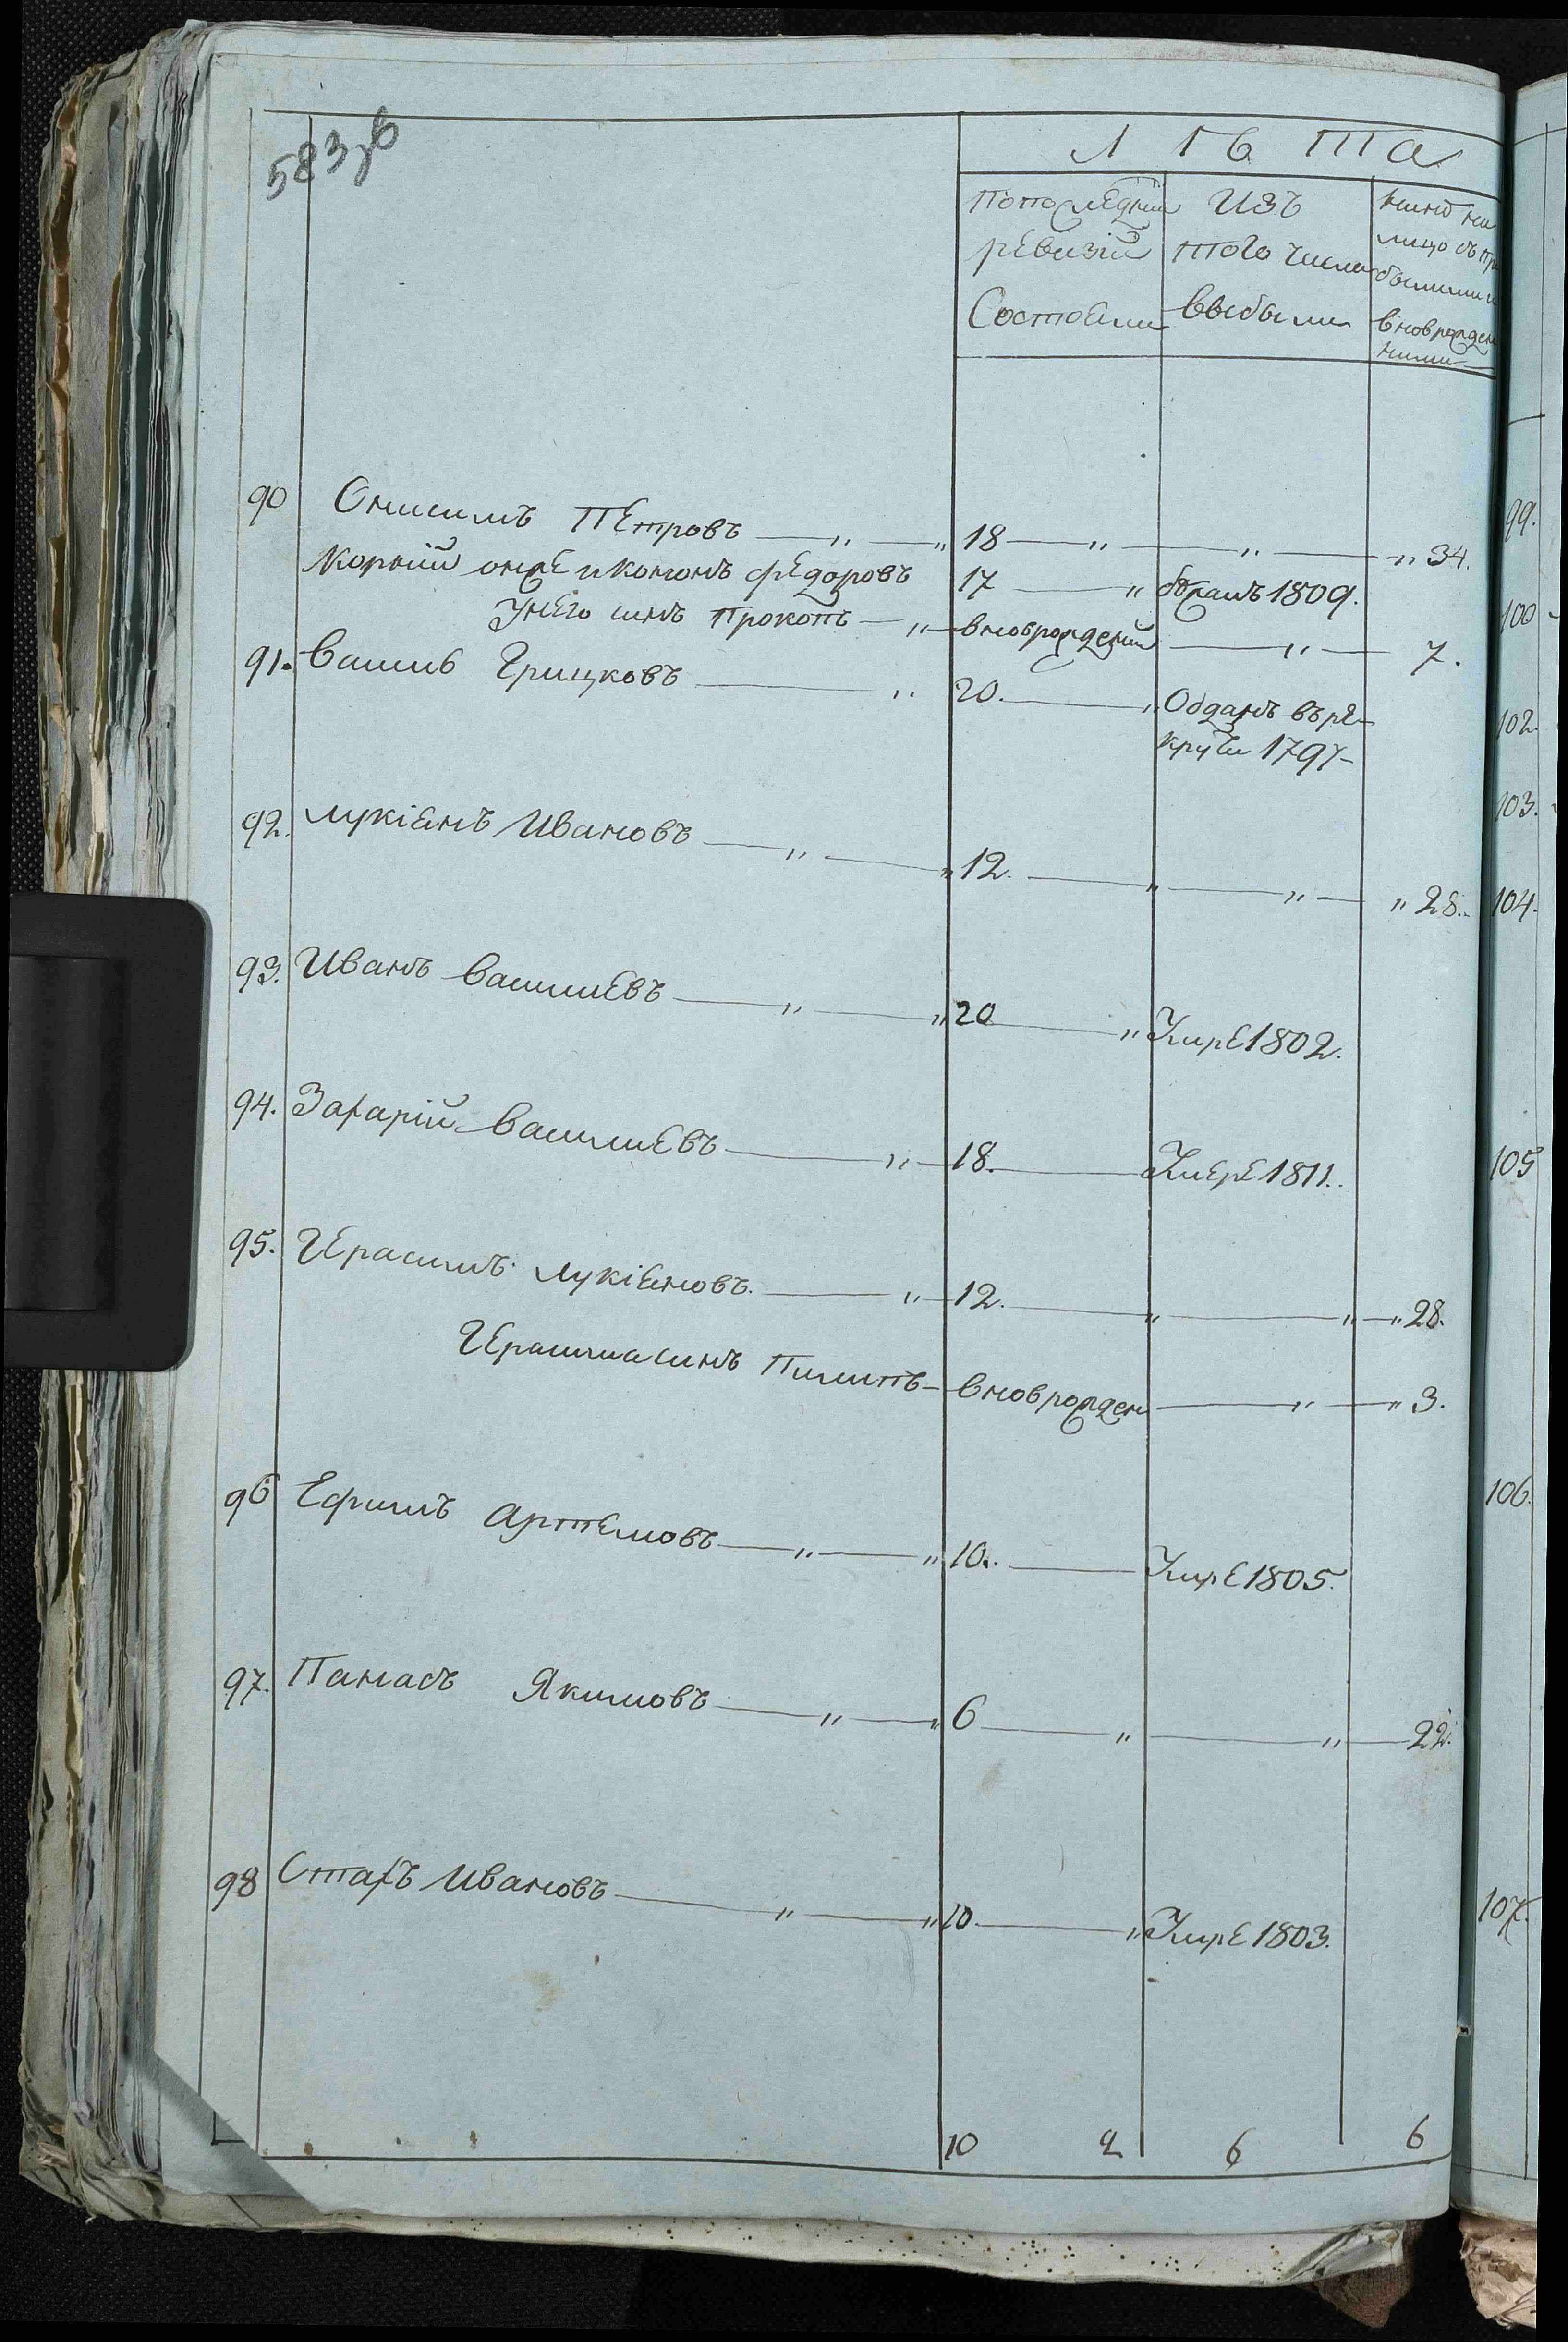 583 об
Лѣта
По последней ревизіи Состояли
Изъ того числа выбыли
Ныне на лицо съ прибылыми и вновь рожденными
90 Онисимъ Петровъ — 18 — „ — „ 34.
Корній онже и Кононъ Федоровъ 17 — „ 1809.
У него синъ Прокопъ — „ — вновь рожденій — „ — 7.
91. Василь Грицковъ — „ 20. — „ Обданъ въ рекруты 1797 —
92. Лукіянъ Ивановъ — „ — 12. — „ — „ — „ 28.
93. Иванъ Василиевъ — „ — „ 20 — „ Умре 1802.
94. Захарій Василиевъ — „ — 18. — Умере 1811.
95. Герасимъ Лукіяновъ. — „ — 12. — „ — „ — „ 28.
Герасима синъ Пилипъ — вновь рожден — „ — „ 3.
96 Ефимъ Артемовъ — „ — „ 10. — Умре 1805.
97. Панасъ Якимовъ — „ — „ 6 — „ — „ — 22.
98 Стахъ Ивановъ — „ — „ 10 — „ Умре 1803.
10 2 6 6
99.
100
102.
103.
104.
105
106.
107.